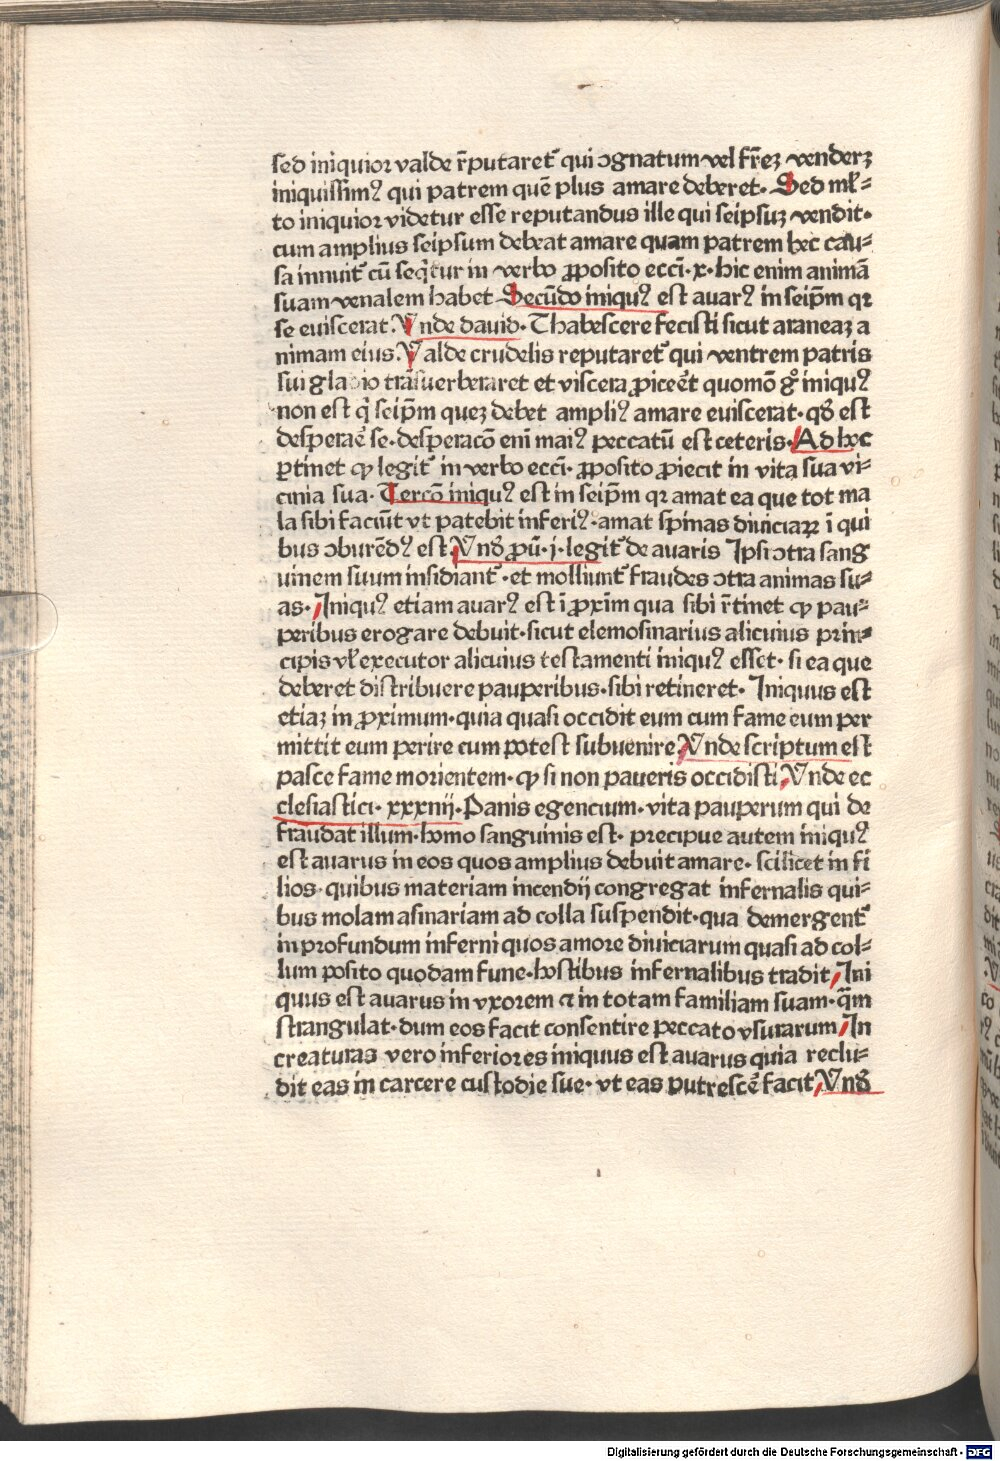 sed iniquior valde r̄putaret᷑ qui ↄgnatum vel fr̄eꝫ venderꝫ
iniquissimꝰ qui patrem quē plus amare deberet· Sed ml̄⸗
to iniquior videtur esse reputandus ille qui seipsuꝫ vendit·
cum amplius seipsum debeat amare quam patrem hec cau⸗
sa innuit᷑ cū seq̄tur in verbo ꝓposito ecci·x·hic enim animā
suam venalem habet Secūdo iniquꝰ est auarꝰ in seip̄m qꝛ
se euiscerat Vnde dauid· Thabescere fecisti sicut araneaꝫ a
nimam eius. Valde crudelis reputaret᷑ qui ventrem patris
sui gladio trāsuerberaret et viscera ꝓiceēt quomō gͦ iniquꝰ
non est q̄ seip̄m queꝫ debet ampliꝰ amare euiscerat·qđ est
desperaē se·desperacō eni maiꝰ peccatū est ceteris·Ad hec
ꝑtinet ꝙ legit᷑ in verbo ecci·ꝓposito ꝓiecit in vita sua vi⸗
cinia sua· Tercō iniquꝰ est in seip̄m qꝛ amat ea que tot ma
la sibi faciūt vt patebit inferiꝰ·amat spinas diuiciaꝝ ī qui
bus ↄburēdꝰ est Vnđ ꝓū·j·legit᷑ de auaris Ipsi ↄtra sang
uinem suum insidiant᷑·et molliunt᷑ fraudes ↄtra animas su⸗
as· Iniquꝰ etiam auarꝰ est ī ꝓxīm qua sibi r̄tinet ꝙ pau⸗
peribus erogare debuit·sicut elemosinarius alicuius prin⸗
cipis vl̄ executor alicuius testamenti iniquꝰ esset· si ea que
deberet distribuere pauperibus·sibi retineret· Iniquus est
etiaꝫ in ꝓximum·quia quasi occidit eum cum fame eum per
mittit eum perire cum potest subuenire Vnde scriptum est
pasce fame morientem·ꝙ si non paueris occidisti Vnde ec
clesiastici· xxxnij·Panis egencium·vita pauperum qui de
fraudat illum·homo sanguinis est· precipue autem iniquꝰ
est auarus in eos quos amplius debuit amare· scilicet in fi
lios·quibus materiam incendij congregat infernalis qui⸗
bus molam asinariam ad colla suspendit·qua demergent᷑
in profundum inferni quos amore diuiciarum quasi ad col⸗
lum posito quodam fune·hostibus infernalibus tradit Ini
quus est auarus in vxorem ⁊ in totam familiam suam·q̄m
strangulat·dum eos facit consentire peccato vsurarum In
creaturas vero inferiores iniquus est auarus quia reclu⸗
dit eas in carcere custodie sue· vt eas putrescē facit Vnđ
Digitalisierung gefördert durch die Deutsche Forschungsgemeinschaft - DFG